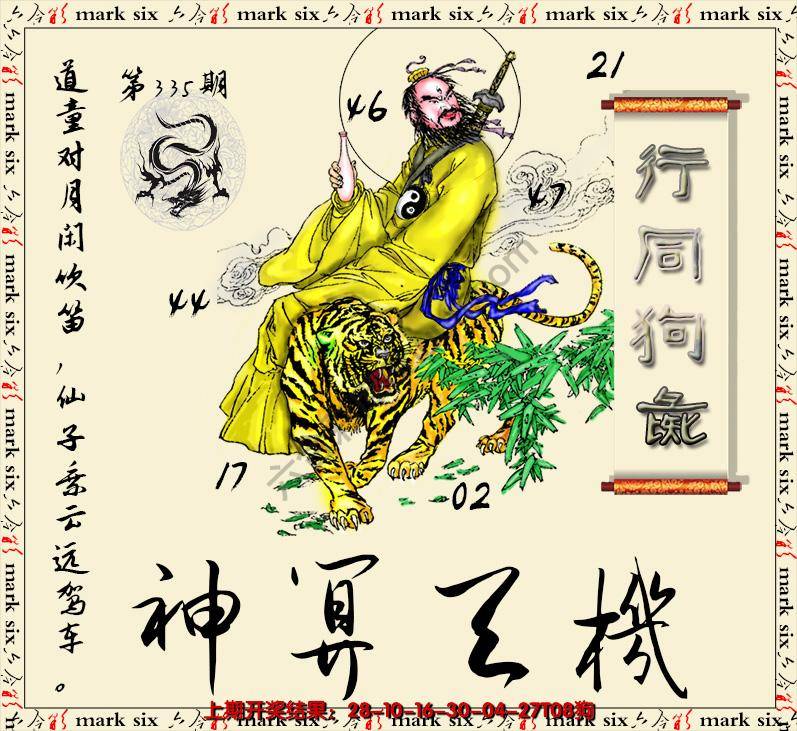 mark six 六合彩 mark six 六合彩 mark six 六合彩 mark six 六合彩 mark six
第335期
道童对月闲吹笛，仙子乘云远驾车。
21
46
47
44
17
02
行同狗彘
神算天機
上期开奖结果：28-10-16-30-04-27T08狗
mark six 六合彩 mark six 六合彩 mark six 六合彩 mark six 六合彩 mark six